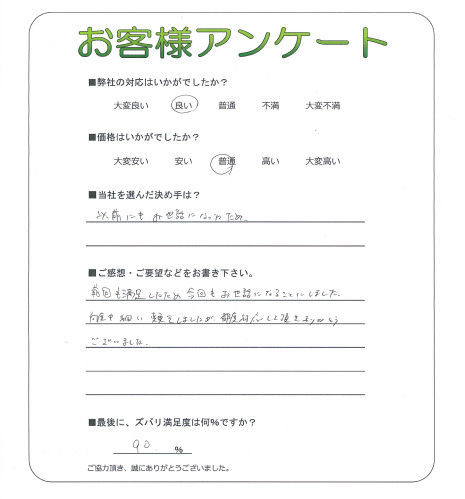 お客様アンケート
■弊社の対応はいかがでしたか？
大変良い 良い 普通 不満 大変不満
■価格はいかがでしたか？
大変安い 安い 普通 高い 大変高い
■当社を選んだ決め手は？
以前にもお世話になったため。
■ご感想・ご要望などをお書き下さい。
前回も満足したため今回もお世話になることにしました。
何度も細い 変更をしましたが、都度対応して頂きありがとう
ございました。
■最後に、ズバリ満足度は何％ですか？
90 ％
ご協力頂き、誠にありがとうございました。